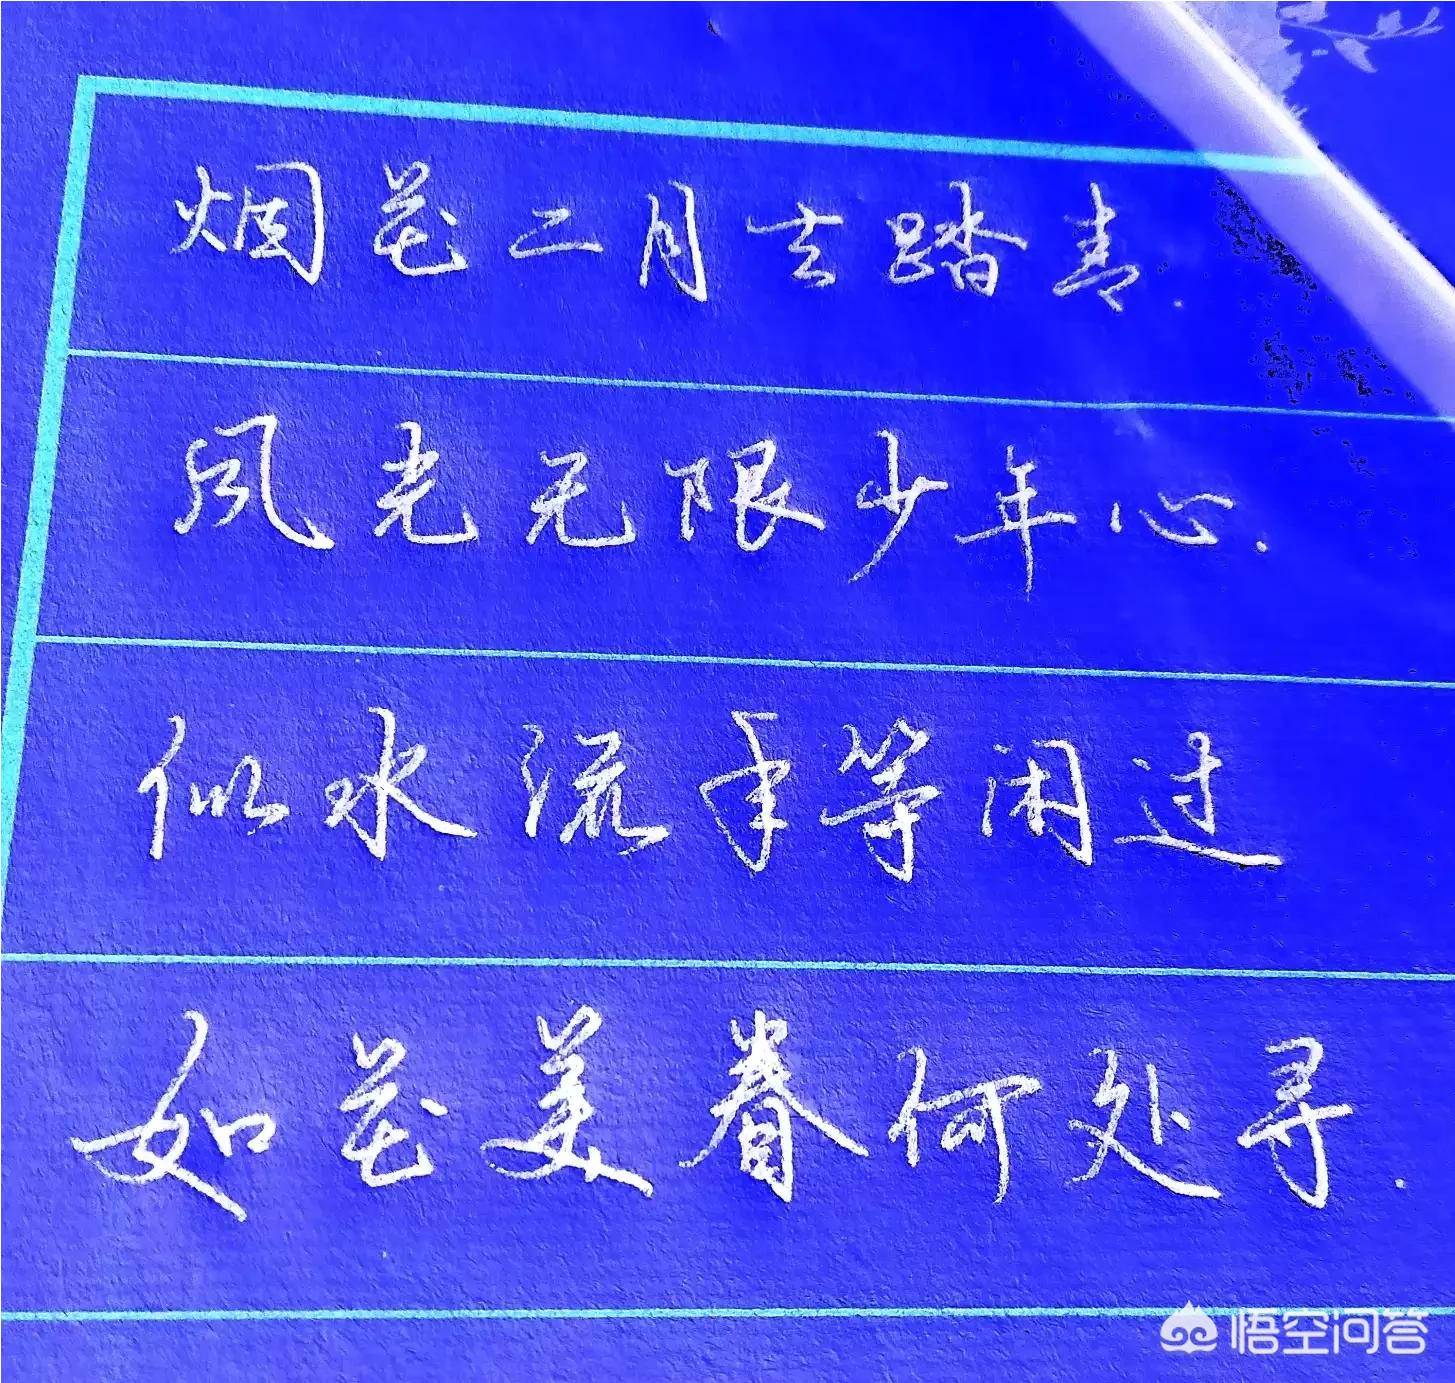 烟花二月去踏青.
风光无限少年心.
似水流年等闲过
如花美眷何处寻.
悟空问答